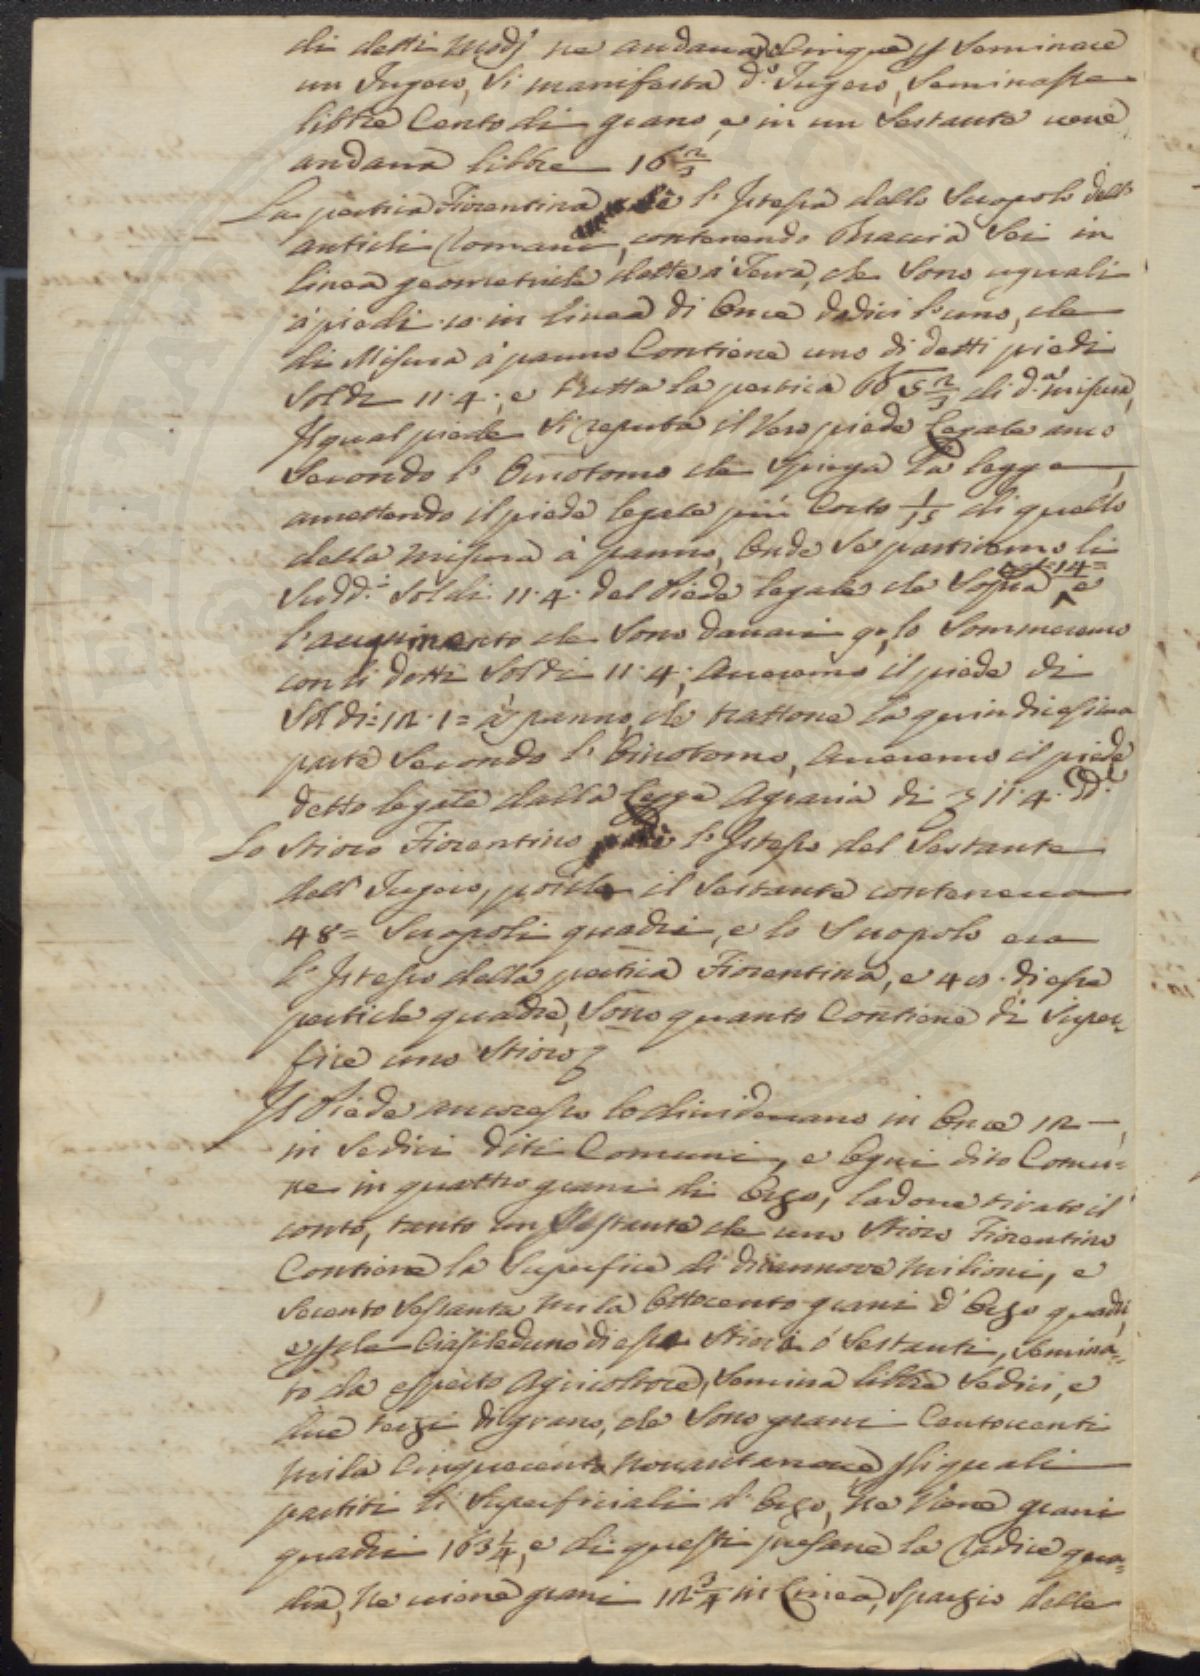 di detti Modj ne andava Cinque p Seminare
un Iugero, Si manifesta d.º Iugero, Seminasse
libbre Cento di grano, e in un Sestante vene
andava libbre 16 2/3
La pertica Fiorentina è l'Istessa dello Scropolo dell'
antichi Romani, contenendo Braccia Sei in
linea geometricha dette a Terra, che Sono uguali
a piedi 10 in linea di Once dodici l'uno, che
di Misura a panno Contiene uno di detti piedi
Soldi 11.4; e tutta la pertica B 5 2/3 di d.ª misura,
Il qual piede Si reputa il Vero piede Legale anco
Secondo l' che Spiega la legge
amettendo il piede legale più Corto 1/15 di quello
della misura a panno, Onde Se partiremo li
Sudd.i Soldi 11.4. del Piede legale de Sopra 14= e
l'augumento che Sono danari 9, lo Sommeremo
con li detti Soldi 11.4; Averemo il piede di
Soldi 12.1= a panno, che trattone la quindicesima
parte Secondo l' Averemo il piede
detto legale dalla Legge Agraria di 11.4. dd.
Lo Stioro Fiorentino è l'Istesso del Sestante
dell' Iugero, poiche il Sestante conteneva
48= Scropoli quadri, e lo Scropolo era
l'Istesso della pertica Fiorentina, e 48. di esse
pertiche quadre, Sono quanto Contiene di Super=
ficie uno Stioro
Il Piede ancoresso lo dividevano in Once 12 –,
in Sedici Diti Comuni, e Ogni dito Comu=
ne in quattro grani di Orzo, ladove tirato il
conto, tanto un Sestante che uno Stioro Fiorentino
Contiene la Superficie di diciannove Milioni, e
Secento Sessanta Mila Ottocento grani d'Orzo quadri,
e che Ciascheduno di essi Stiora o Sestanti, Semina=
to da esperto Agricoltore, Semina libbre Sedici, e
due terzi di grano, che Sono grani Centoventi
Mila Cinquecento Novantanove p li quali
partiti li Superficiali d'Orzo, Ne Viene grani
quadri 163 1/4, e di questi presane la Radice qua=
dra, Ne viene grani 12 3/4 in Linea, Spazio delle